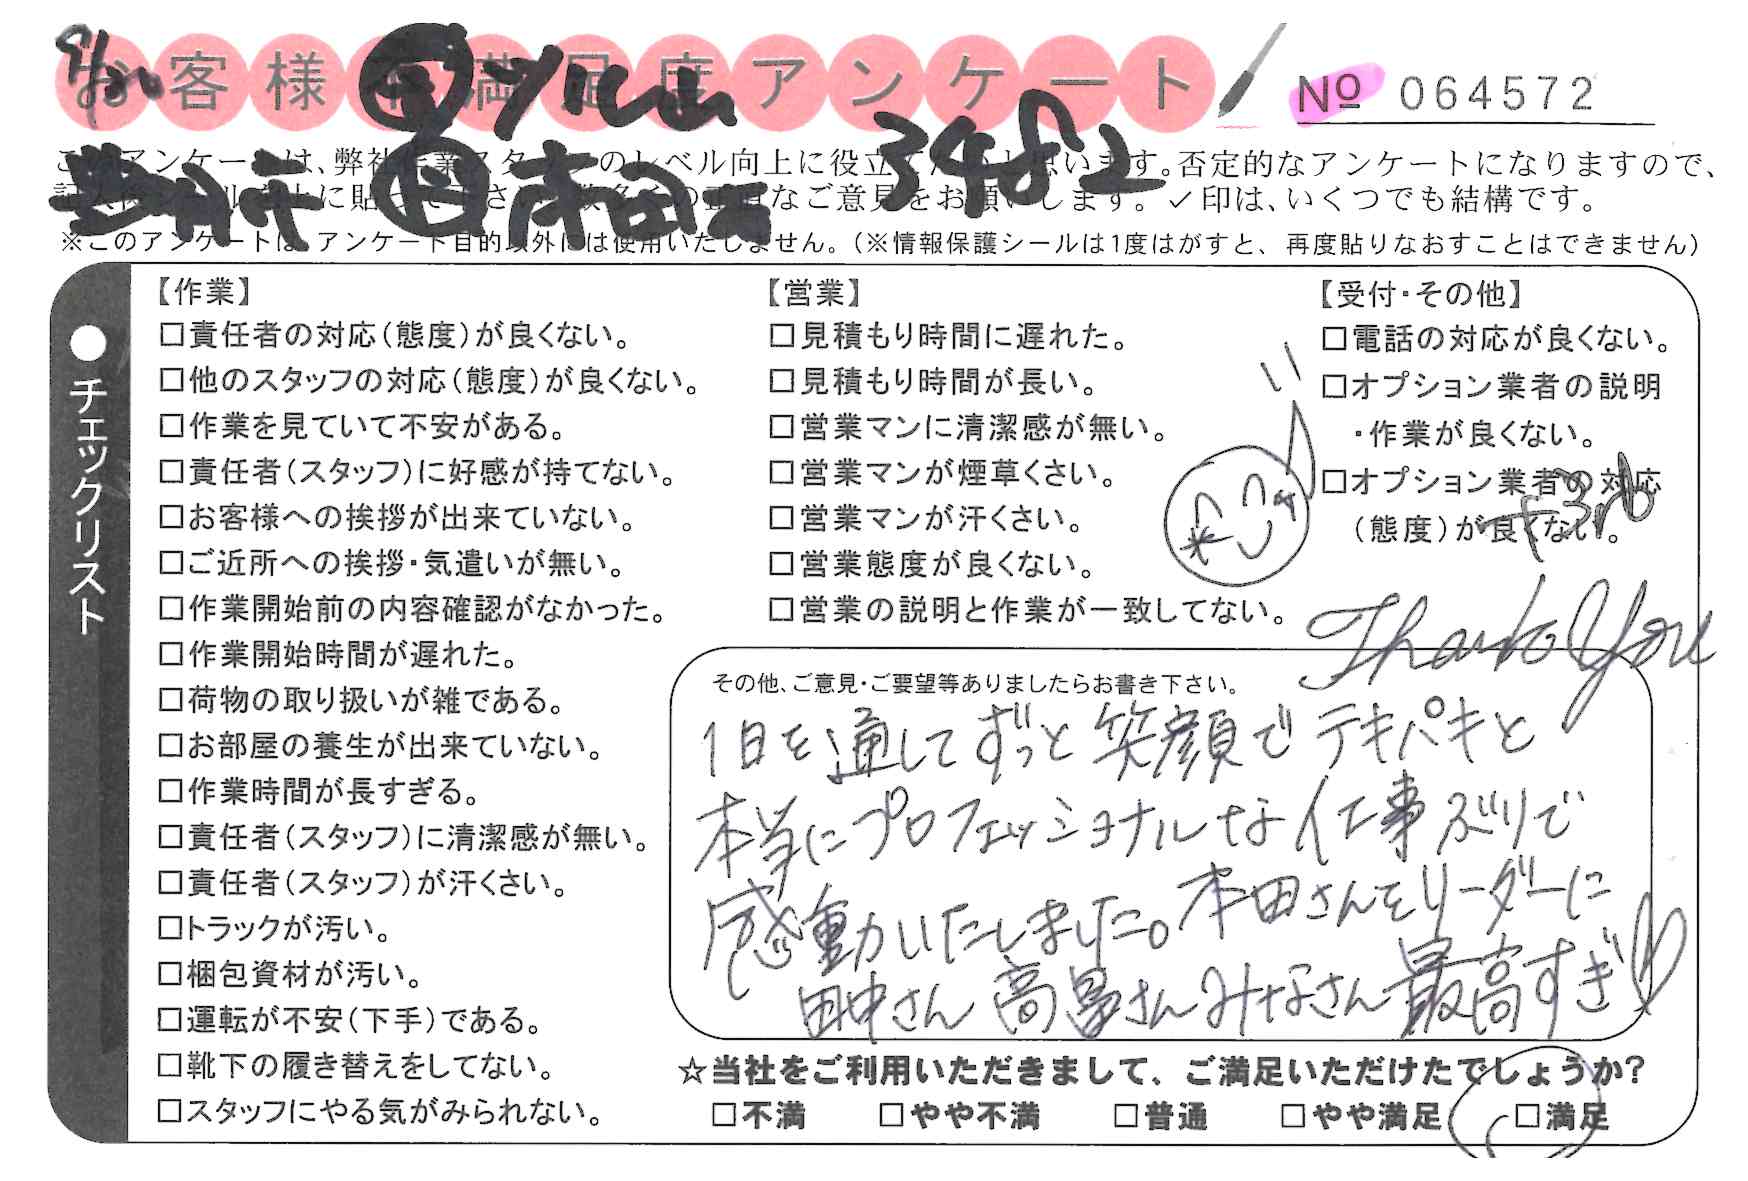 お客様不満足度アンケート
No 064572
3482
このアンケートは、弊社作業スタッフのレベル向上に役立てたいと思います。否定的なアンケートになりますので、
なご意見をお願いします。✓印は、いくつでも結構です。
※このアンケートは、アンケート目的以外には使用いたしません。(※情報保護シールは1度はがすと、再度貼りなおすことはできません)
●チェックリスト
【作業】
□責任者の対応(態度)が良くない。
□他のスタッフの対応(態度)が良くない。
□作業を見ていて不安がある。
□責任者(スタッフ)に好感が持てない。
□お客様への挨拶が出来ていない。
□ご近所への挨拶・気遣いが無い。
□作業開始前の内容確認がなかった。
□作業開始時間が遅れた。
□荷物の取り扱いが雑である。
□お部屋の養生が出来ていない。
□作業時間が長すぎる。
□責任者(スタッフ)に清潔感が無い。
□責任者(スタッフ)が汗くさい。
□トラックが汚い。
□梱包資材が汚い。
□運転が不安(下手)である。
□靴下の履き替えをしてない。
□スタッフにやる気がみられない。
【営業】
□見積もり時間に遅れた。
□見積もり時間が長い。
□営業マンに清潔感が無い。
□営業マンが煙草くさい。
□営業マンが汗くさい。
□営業態度が良くない。
□営業の説明と作業が一致してない。
【受付・その他】
□電話の対応が良くない。
□オプション業者の説明
・作業が良くない。
□オプション業者の対応
(態度)が良くない。
Thank You
その他、ご意見・ご要望等ありましたらお書き下さい。
1日を通してずっと笑顔でテキパキと
本当にプロフェッショナルな仕事ぶりで
感動いたしました。本田さんをリーダーに
田中さん 高畠さんみなさん最高すぎ
☆当社をご利用いただきまして、ご満足いただけたでしょうか?
□不満 □やや不満 □普通 □やや満足 □満足